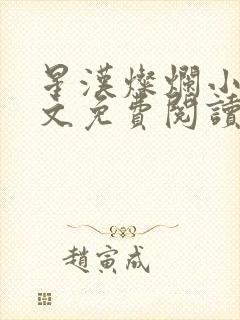 星漢燦爛小
文免費閱讀
趙寅成